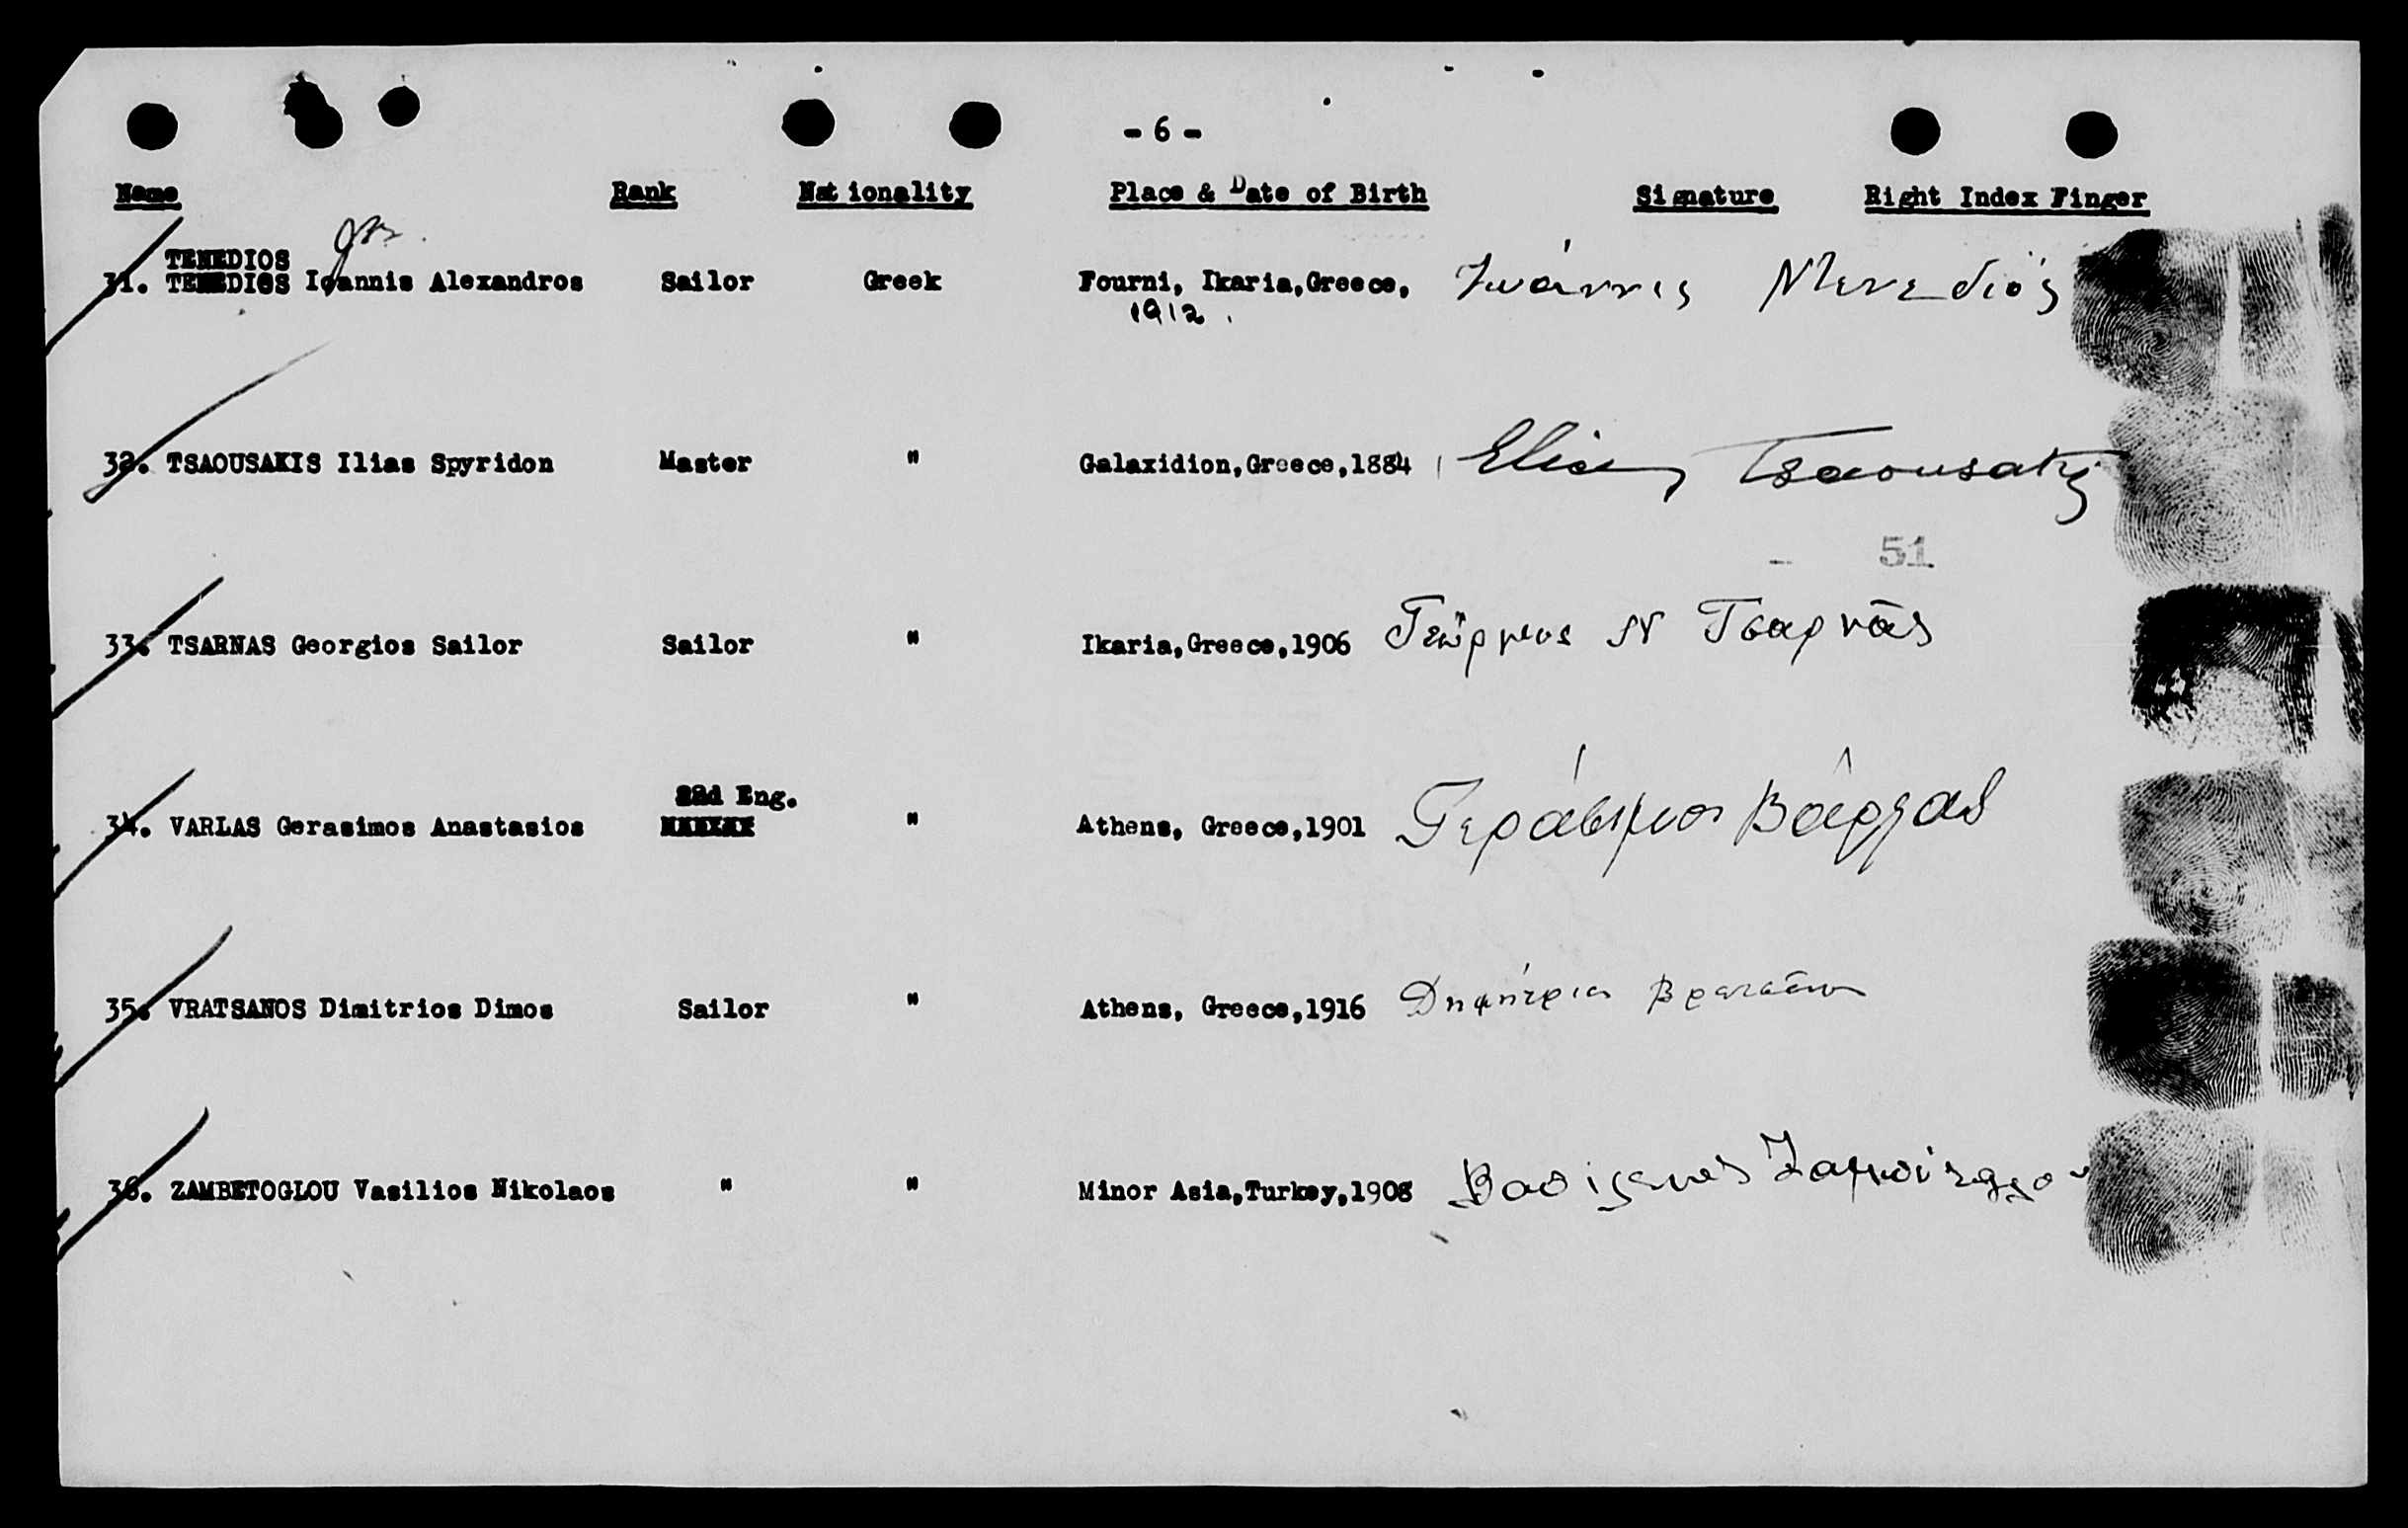 - 6 -
Name Rank Nationality Place & Date of Birth Signature Right Index Finger
TENEDIOS
31. Ioannis Alexandros Sailor Greek Fourni, Ikaria,Greece, Ἰωάννις
1912.
32. TSAOUSAKIS Ilias Spyridon Master " Galaxidion,Greece,1884 Elias Tsaousakis
- 51
33. TSARNAS Georgios Sailor Sailor " Ikaria,Greece,1906 Γεώργιος Ν Τσαρνᾶς
2nd Eng.
34. VARLAS Gerasimos Anastasios " Athens, Greece,1901 Γεράσιμος Βάρλας
35. VRATSANOS Dimitrios Dimos Sailor " Athens, Greece,1916 Δημήτριος
36. ZAMBETOGLOU Vasilios Nikolaos " " Minor Asia,Turkey,1908